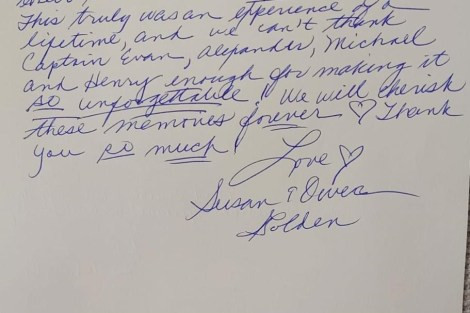 This truly was an experience of a
lifetime, and we can't thank
Captain Evan, Alexander, Michael
and Henry enough for making it
so unforgettable! We will cherish
these memories forever ♡ Thank
you so much!
Love ♡
Susan & Owen
Golden